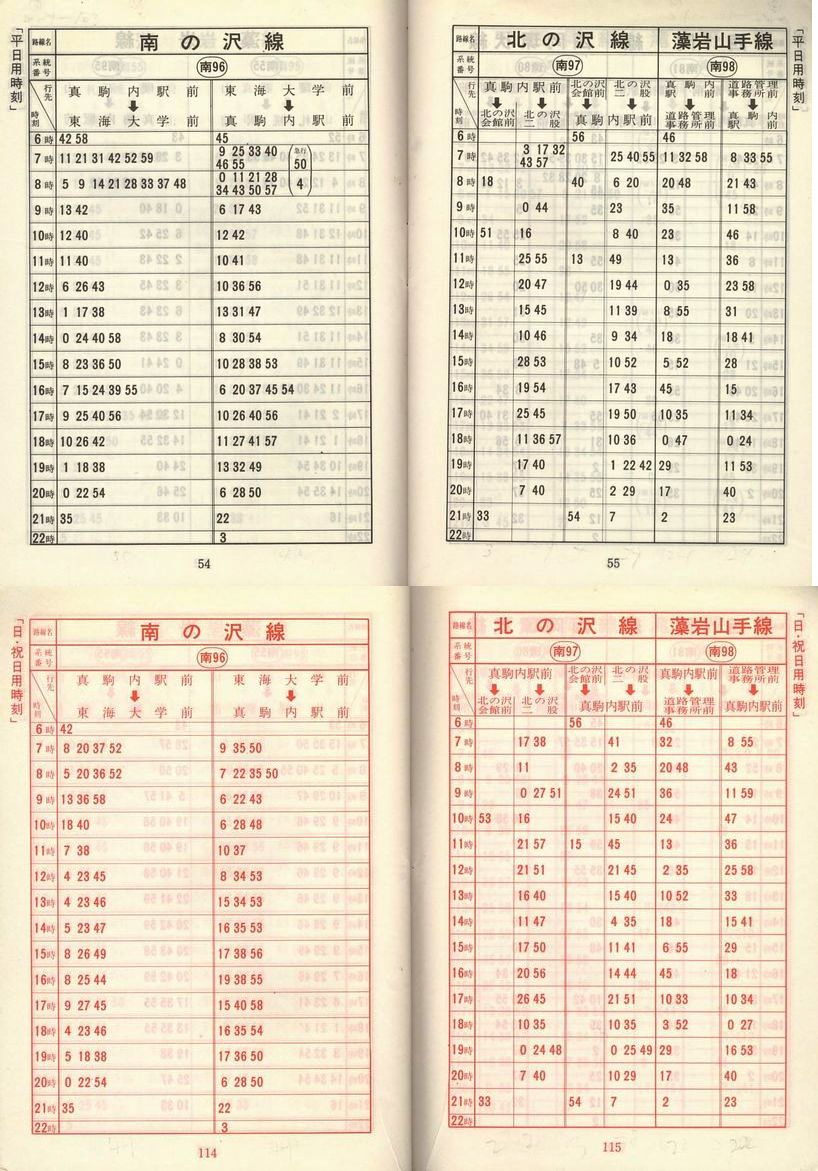 「平日用時刻」
路線名 南の沢線
系統番号 南96
行先 時刻 真駒内駅前 東海大学前
↓ ↓
東海大学前 真駒内駅前
6時 42 58 45
7時 11 21 31 42 52 59 9 25 33 40 46 55 (急行 50
8時 5 9 14 21 28 33 37 48 0 11 21 28 34 43 50 57 4)
9時 13 42 6 17 43
10時 12 40 12 42
11時 11 40 10 41
12時 6 26 43 10 36 56
13時 1 17 38 13 31 47
14時 0 24 40 58 8 30 54
15時 8 23 36 50 10 28 38 53
16時 7 15 24 39 55 6 20 37 45 54
17時 9 25 40 56 10 26 40 56
18時 10 26 42 11 27 41 57
19時 1 18 38 13 32 49
20時 0 22 54 6 28 50
21時 35 22
22時 3
54
「平日用時刻」
路線名 北の沢線 藻岩山手線
系統番号 南97 南98
行先 時刻 真駒内駅前 北の沢会館前 北の沢二股 真駒内駅前 道路管理事務所前
↓ ↓ ↓ ↓ ↓ ↓
北の沢会館前 北の沢二股 真駒内駅前 道路管理事務所前 真駒内駅前
6時 56 46
7時 3 17 32 43 57 25 40 55 11 32 58 8 33 55
8時 18 40 6 20 20 48 21 43
9時 0 44 23 35 11 58
10時 51 16 8 40 23 46
11時 25 55 13 49 13 36
12時 20 47 19 44 0 35 23 58
13時 15 45 11 39 8 55 31
14時 10 46 9 34 18 18 41
15時 28 53 10 52 5 52 28
16時 19 54 17 43 45 15
17時 25 45 19 50 10 35 11 34
18時 11 36 57 10 36 0 47 0 24
19時 17 40 1 22 42 29 11 53
20時 7 40 2 29 17 40
21時 33 54 7 2 23
22時
55
「日・祝日用時刻」
路線名 南の沢線
系統番号 南96
行先 時刻 真駒内駅前 東海大学前
↓ ↓
東海大学前 真駒内駅前
6時 42
7時 8 20 37 52 9 35 50
8時 5 20 36 52 7 22 35 50
9時 13 36 58 6 22 43
10時 18 40 6 28 48
11時 7 38 10 37
12時 4 23 45 8 34 53
13時 4 23 46 15 34 53
14時 5 23 47 16 35 53
15時 8 26 49 17 38 56
16時 8 25 44 19 38 55
17時 9 27 45 15 40 58
18時 4 23 46 16 35 54
19時 5 18 38 17 36 50
20時 0 22 54 6 28 50
21時 35 22
22時 3
114
「日・祝日用時刻」
路線名 北の沢線 藻岩山手線
系統番号 南97 南98
行先 時刻 真駒内駅前 北の沢会館前 北の沢二股 真駒内駅前 道路管理事務所前
↓ ↓ ↓ ↓ ↓ ↓
北の沢会館前 北の沢二股 真駒内駅前 道路管理事務所前 真駒内駅前
6時 56 46
7時 17 38 41 32 8 55
8時 11 2 35 20 48 43
9時 0 27 51 24 51 36 11 59
10時 53 16 15 40 24 47
11時 21 57 15 45 13 36
12時 21 51 21 45 2 35 25 58
13時 16 40 15 40 10 52 33
14時 11 47 4 35 18 15 41
15時 17 50 11 41 6 55 29
16時 20 56 14 44 45 18
17時 26 45 21 51 10 33 10 34
18時 10 35 10 35 3 52 0 27
19時 0 24 48 0 25 49 29 16 53
20時 7 40 10 29 17 40
21時 33 54 7 2 23
22時
115